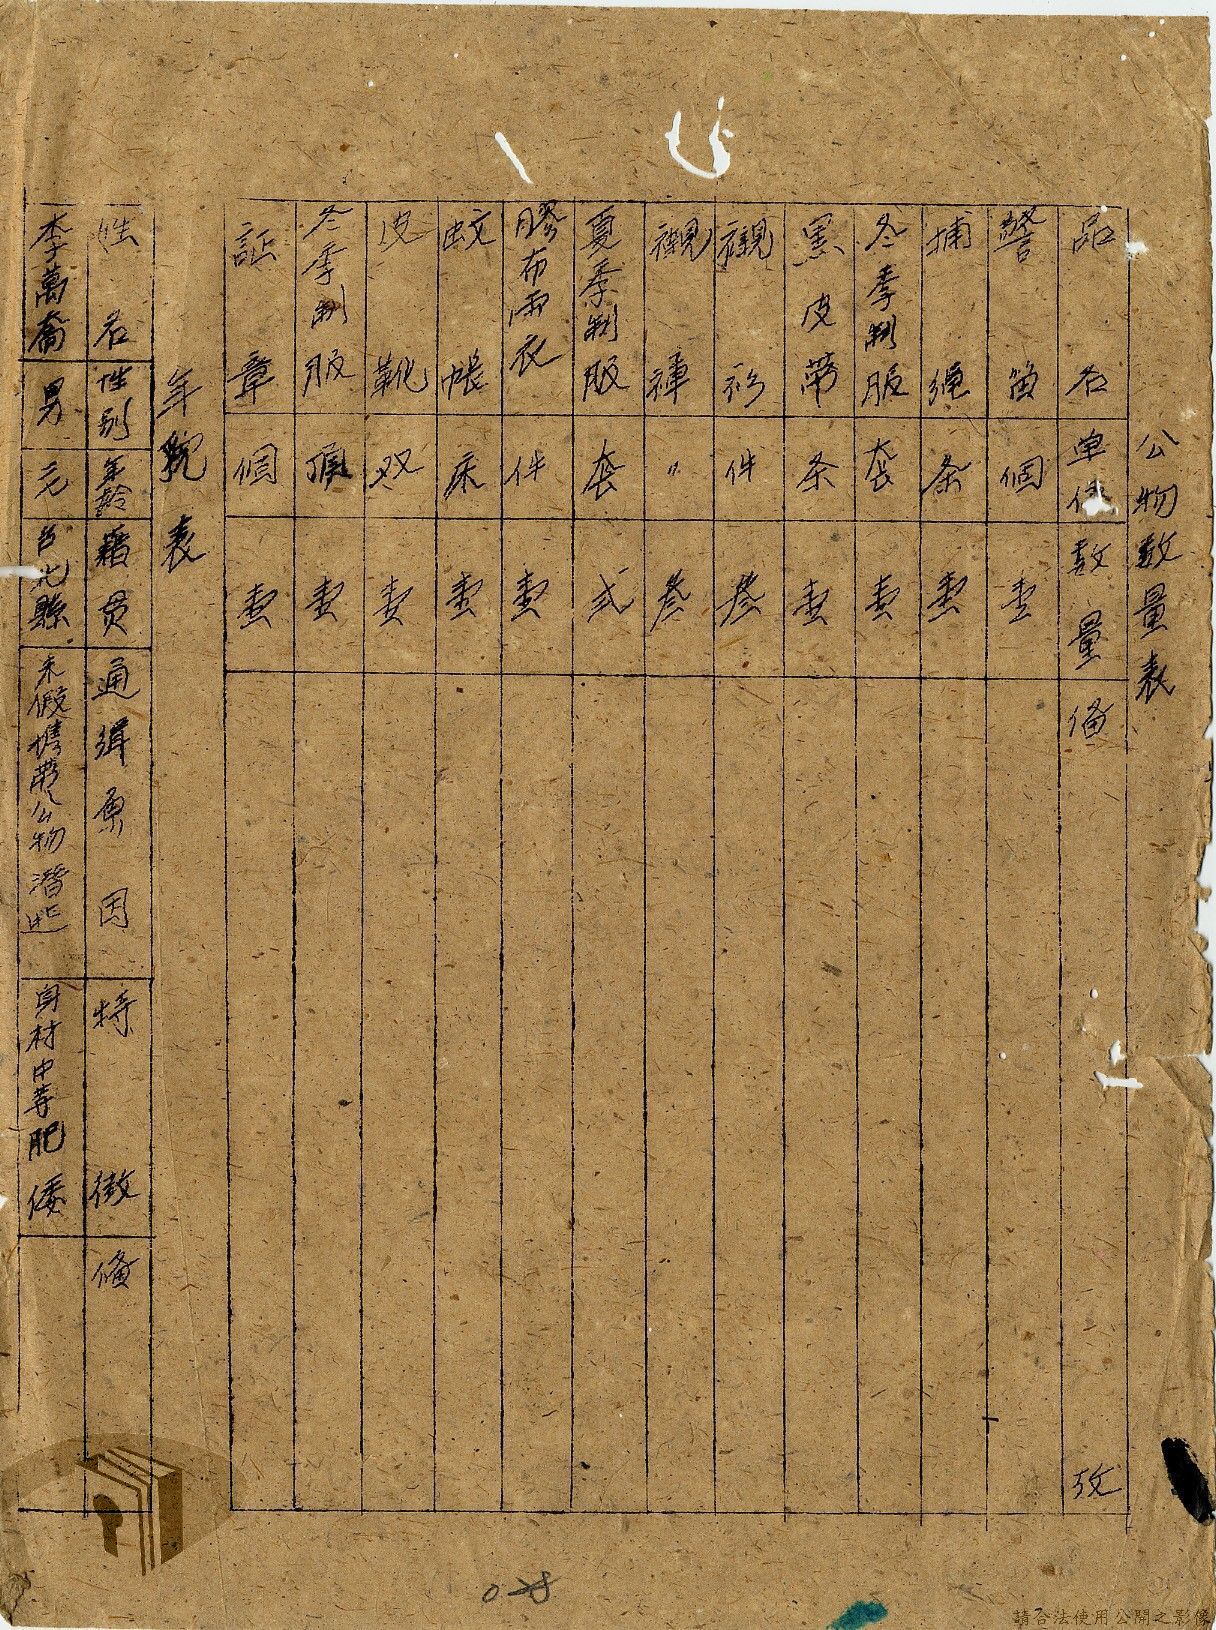 公物数量表
品名 单位 数量 備攷
警笛 個 壹
捕繩 条 壹
冬季制服 套 壹
黑皮帶 条 壹
襯衫 件 叁
襯褲 〃 叁
夏季制服 套 弍
膠布雨衣 件 壹
蚊帳 床 壹
皮靴 双 壹
冬季制服 壹
証章 個 壹
年貌表
姓名 性别 年齡 籍貫 通缉原因 特徵 備
李萬喬 男 元 台北縣 未假携帶公物潛逃 身材中等肥倭
0-8
請合法使用公開之影像